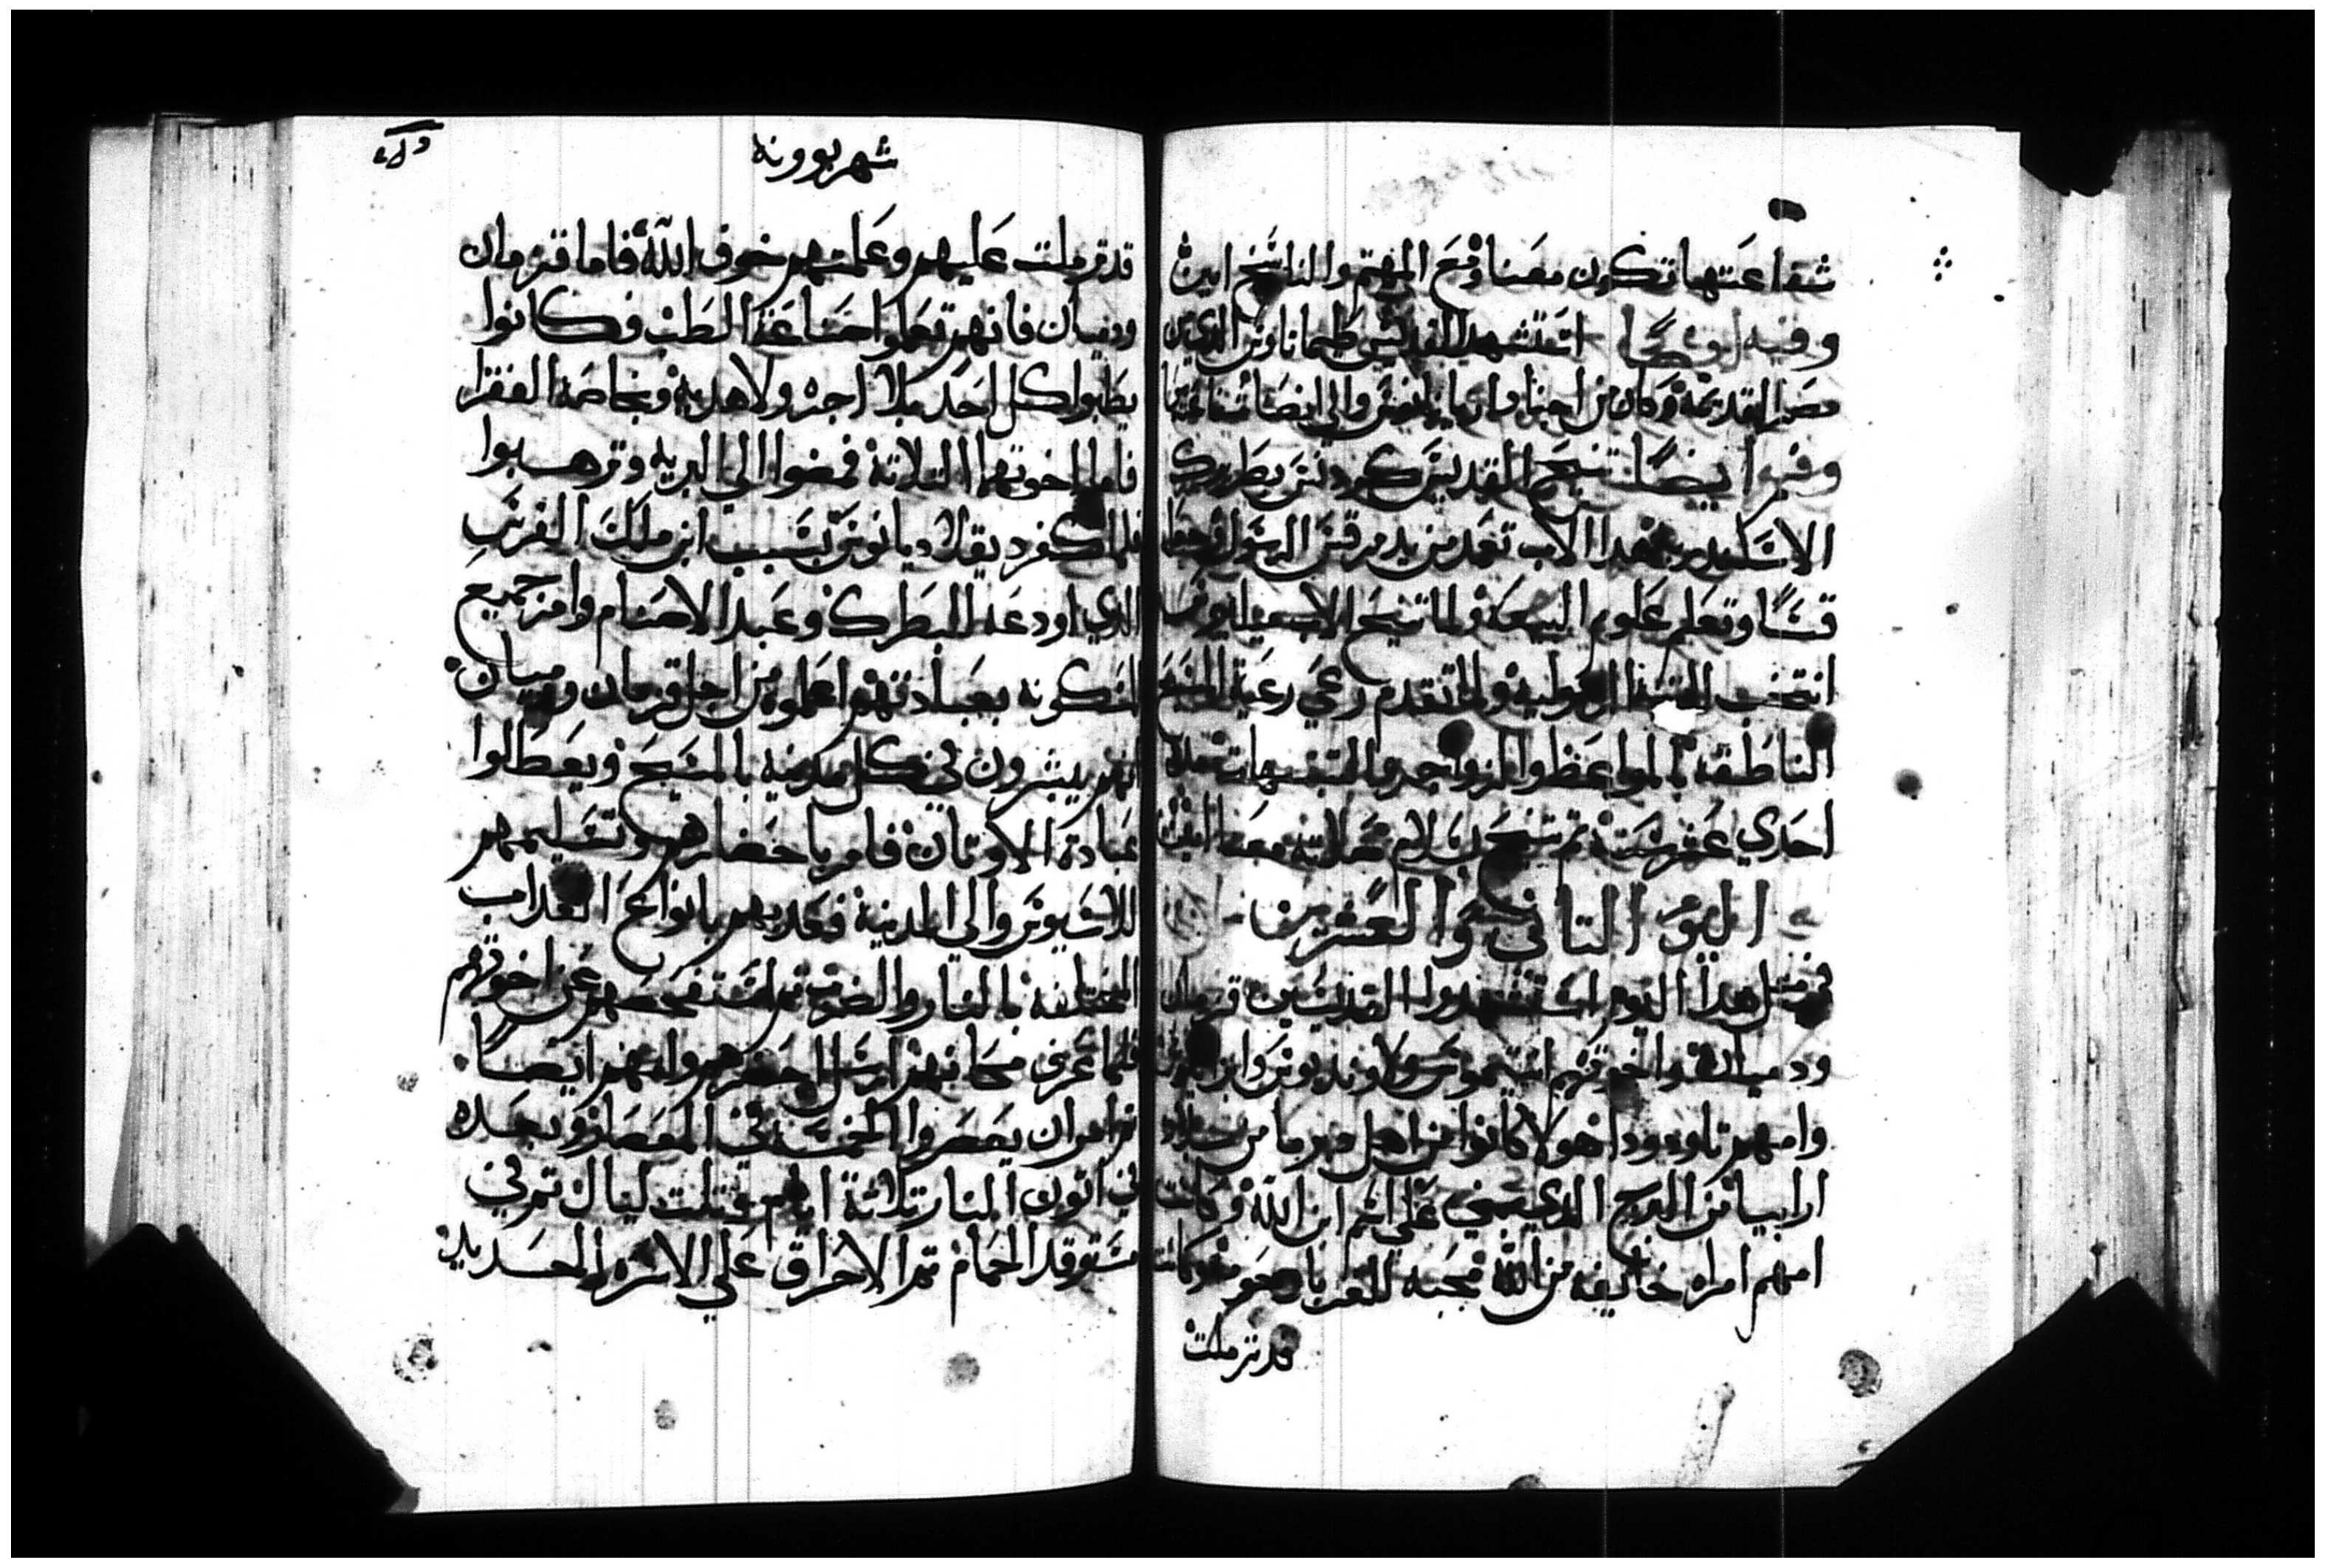 شفاعتها تكون معنا ومع المهتم والناسخ امين
وفيه ايضًا استشهد القديس طيماتاوس الذي من
مصر القديمة وكان من اجناد اريانا والي انصنا شفاعته
وفيه ايضًا تنيح القديس كردنوس بطريرك
الاسكندريه هذا الاب تعمد من يد مرقس الرسول
قسًا وتعلم علوم البيعة ولما تنيح الاب
انتخب لهذه البطركيه ولما تقدم رعي رعية المسيح
الناطقه بالمواعظ والزواجر والتنبيهات مدة
احدي عشر سنة ثم تنيح بسلام صلاته معنا امين
اليوم التاني والعشرين
في مثل هذا اليوم استشهدوا القديسين قزمان
ودميان واخوتهم انتيموس ولاونديوس وابرابيوس
وامهم تاودودا هولا كانوا من اهل دبرما من بلاد
ارابيا من البرج الذي بني علي اسم ابن الله وكانت
امهم امراه خايفه من الله محبه للغربا رحومه وكانت
قد ترملت
شهر بوونه
قد ترملت عليهم وعلمتهم خوف الله فاما قزمان
ودميان فانهم تعلموا صناعة الطب فكانوا
يطببوا كل احد بلا اجره ولا هديه وبخاصة الفقرا
فاما اخوتهما التلاتة فمضوا الي البريه وترهبوا
فلما كفر دقلاديانوس بسبب ابن ملك الفرس
الذي اودعه للبطرك وعبد الاصنام وامر جميع
المسكونه بعبادتهم اعلموه من اجل قزمان ودميان
انهم يبشرون في كل مدينه بالمسيح ويعطلوا
عبادة الاوتان فامر باحضارهم وتسليمهم
للاسيوس والي المدينة فعذبهم بانواع العذاب
المختلفه بالنار والضرب ثم استفحصهم عن اخوتهم
فلما عرف مكانهم ارسل احضرهم وامهم ايضًا
ثم امر ان يعصروا الخمسة في المعصار وبعده
في اتون النار تلاثة ايام وتلت ليال ثم في
مستوقد الحمام ثم الاحراق علي الاسره الحديد